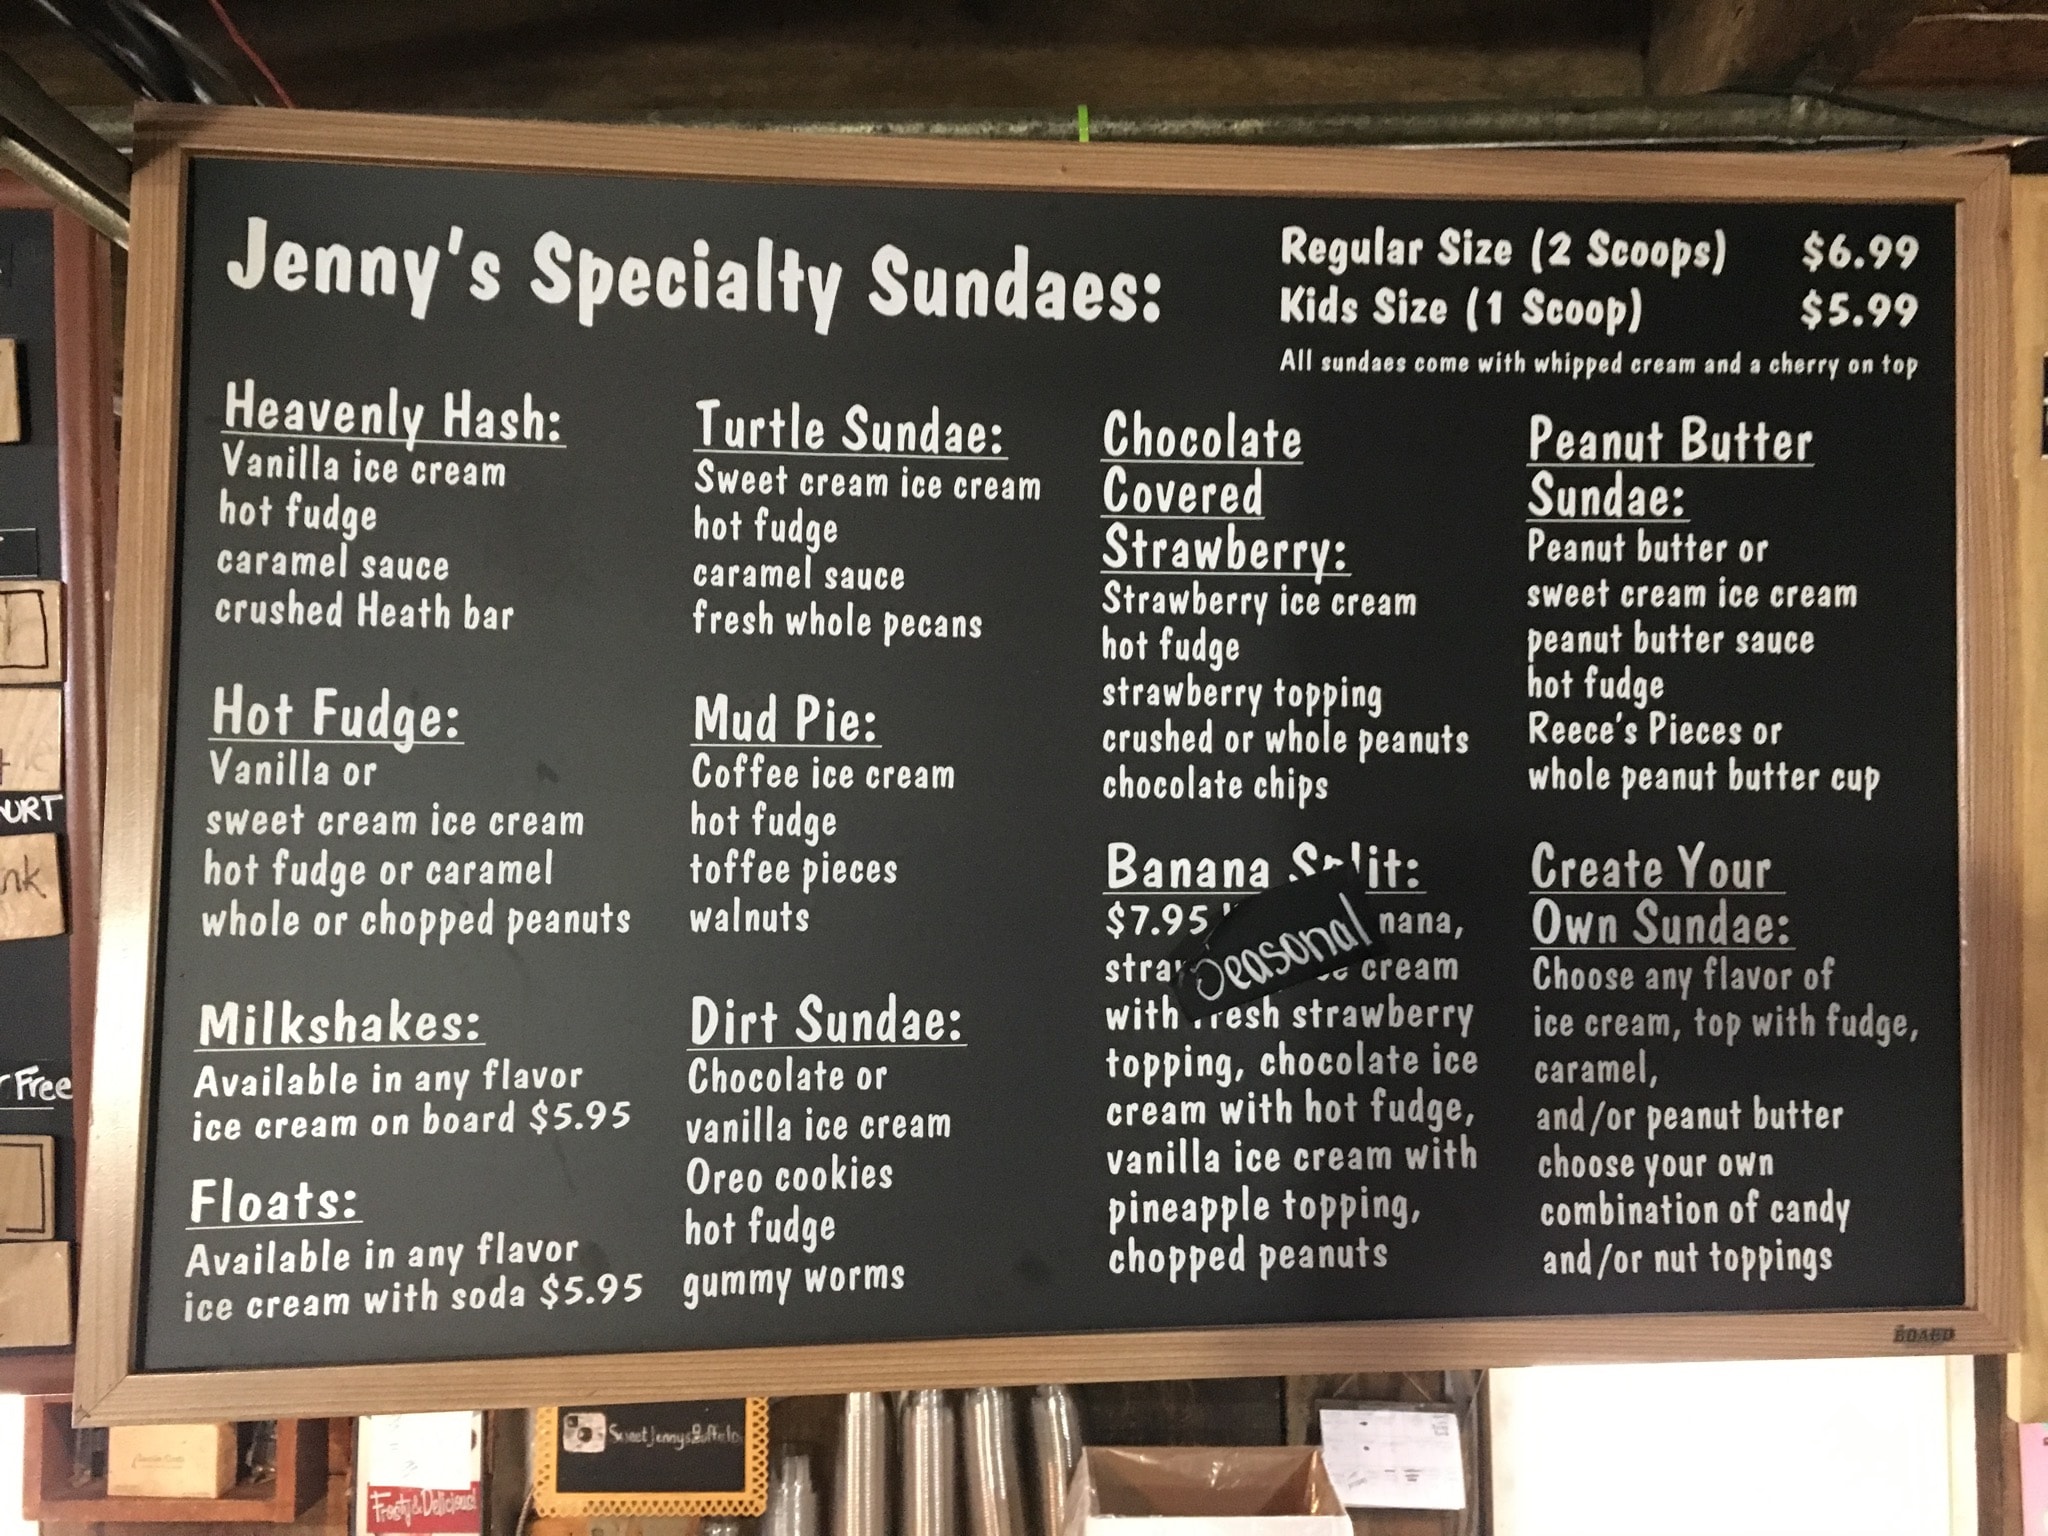 Jenny's Specialty Sundaes:
Regular Size (2 Scoops) $6.99
Kids Size (1 Scoop) $5.99
All sundaes come with whipped cream and a cherry on top
Heavenly Hash:
Vanilla ice cream
hot fudge
caramel sauce
crushed Heath bar
Hot Fudge:
Vanilla or
sweet cream ice cream
hot fudge or caramel
whole or chopped peanuts
Milkshakes:
Available in any flavor
ice cream on board $5.95
Floats:
Available in any flavor
ice cream with soda $5.95
Turtle Sundae:
Sweet cream ice cream
hot fudge
caramel sauce
fresh whole pecans
Mud Pie:
Coffee ice cream
hot fudge
toffee pieces
walnuts
Dirt Sundae:
Chocolate or
vanilla ice cream
Oreo cookies
hot fudge
gummy worms
Chocolate
Covered
Strawberry:
Strawberry ice cream
hot fudge
strawberry topping
crushed or whole peanuts
chocolate chips
Banana Split:
$7.95 nana,
Seasonal
cream
with fresh strawberry
topping, chocolate ice
cream with hot fudge,
vanilla ice cream with
pineapple topping,
chopped peanuts
Peanut Butter
Sundae:
Peanut butter or
sweet cream ice cream
peanut butter sauce
hot fudge
Reece's Pieces or
whole peanut butter cup
Create Your
Own Sundae:
Choose any flavor of
ice cream, top with fudge,
caramel,
and/or peanut butter
choose your own
combination of candy
and/or nut toppings
BOARD
URT
nk
Free
SweetJennysBuffalo
Frosty & Delicious!